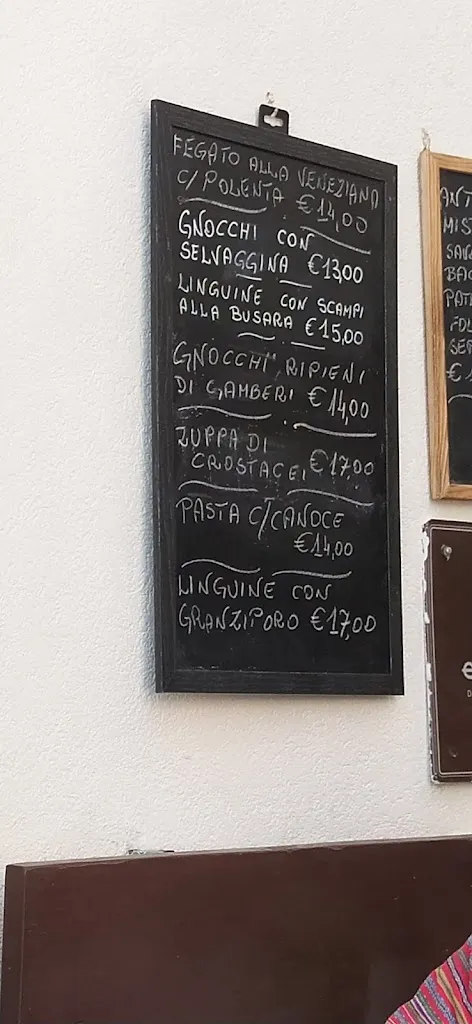 FEGATO ALLA VENEZIANA
C/POLENTA €14,00
GNOCCHI CON
SELVAGGINA €13,00
LINGUINE CON SCAMPI
ALLA BUSARA €15,00
GNOCCHI RIPIENI
DI GAMBERI €14,00
ZUPPA DI
CROSTACEI €17,00
PASTA C/CANOCE
€14,00
LINGUINE CON
GRANZIPORO €17,00
ANT
MIS